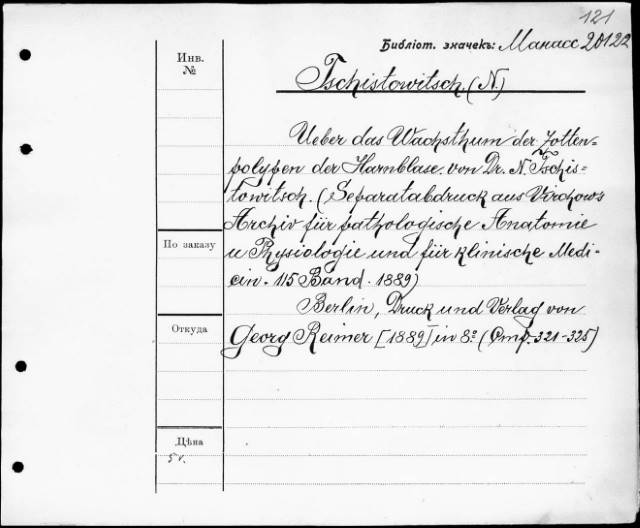 121
Библіот. значекъ: Манасс 20122
Инв.
№
Tschistowitsch. (N.)
Ueber das Wachsthum der Zotten=
polypen der Harnblase. von Dr. N. Tschis=
towitsch. (Separatabdruck aus Virchows
Archiv für pathologische Anatomie
По заказу
u Physiologie und für klinische Medi-
cin. 115 Band. 1889)
Berlin, Druck und Verlag von
Откуда
Georg Reimer [1889] in 8º (Стр. 321-325)
Цѣна